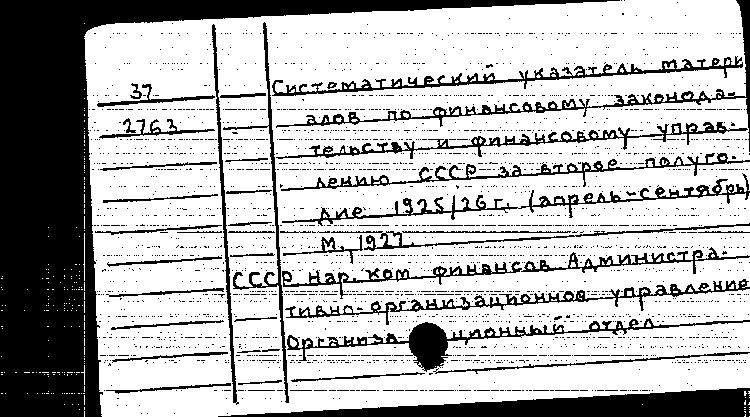 37 Систематический указатель матери
2763 алов по финансовому законода-
тельству и финансовому управ-
лению СССР за второе полуго-
дие 1925/26 г. (апрель-сентябрь)
М., 1927.
СССР нар. ком финансов Администра-
тивно-организационное управление
Организационный отдел.